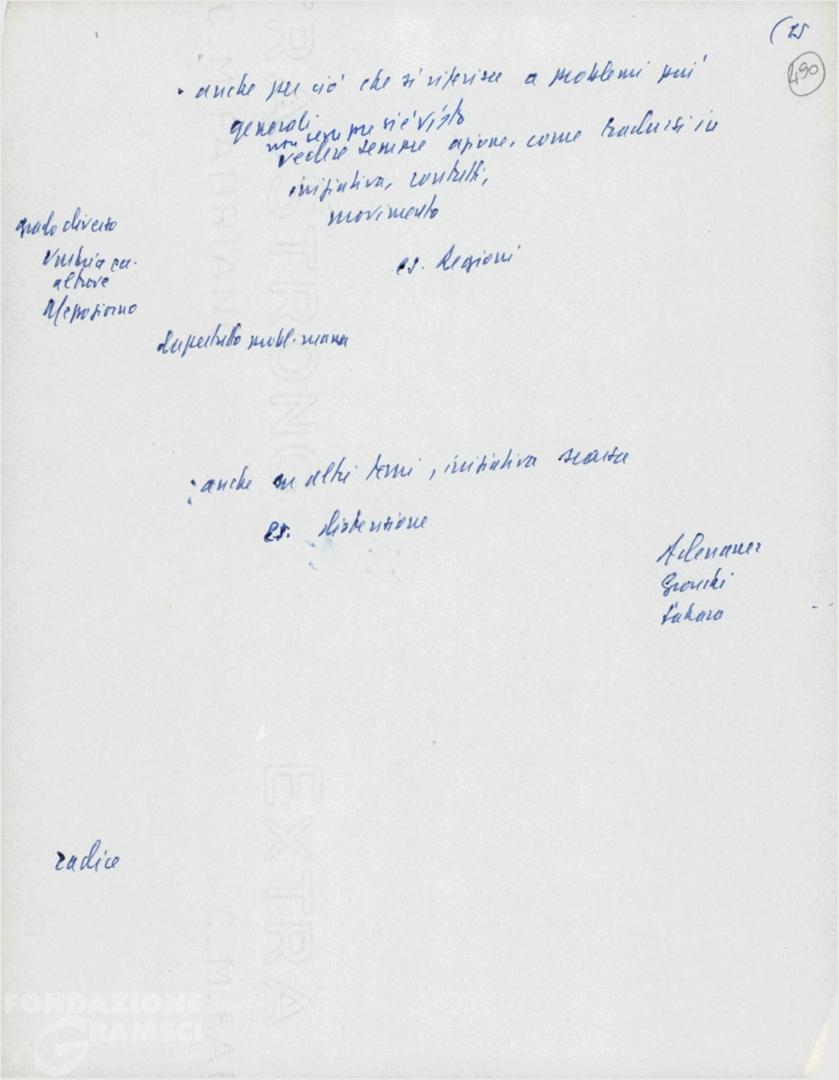 (25
490
• anche per ciò che si riferisce a problemi più
generali
non sempre si è visto
vedere sempre azione, come tradursi in
iniziativa, contatti,
movimento
grado diverso
Umbria ca.
altrove
Mezzogiorno
es. Regioni
probl.
: anche su altri temi, iniziativa scarsa
es. distensione
Adenauer
Gronchi
Sahara
radice
FONDAZIONE
GRAMSCI
EXTRA STRONG
C.M.FABRIANO
EXTRA
C.M.FA